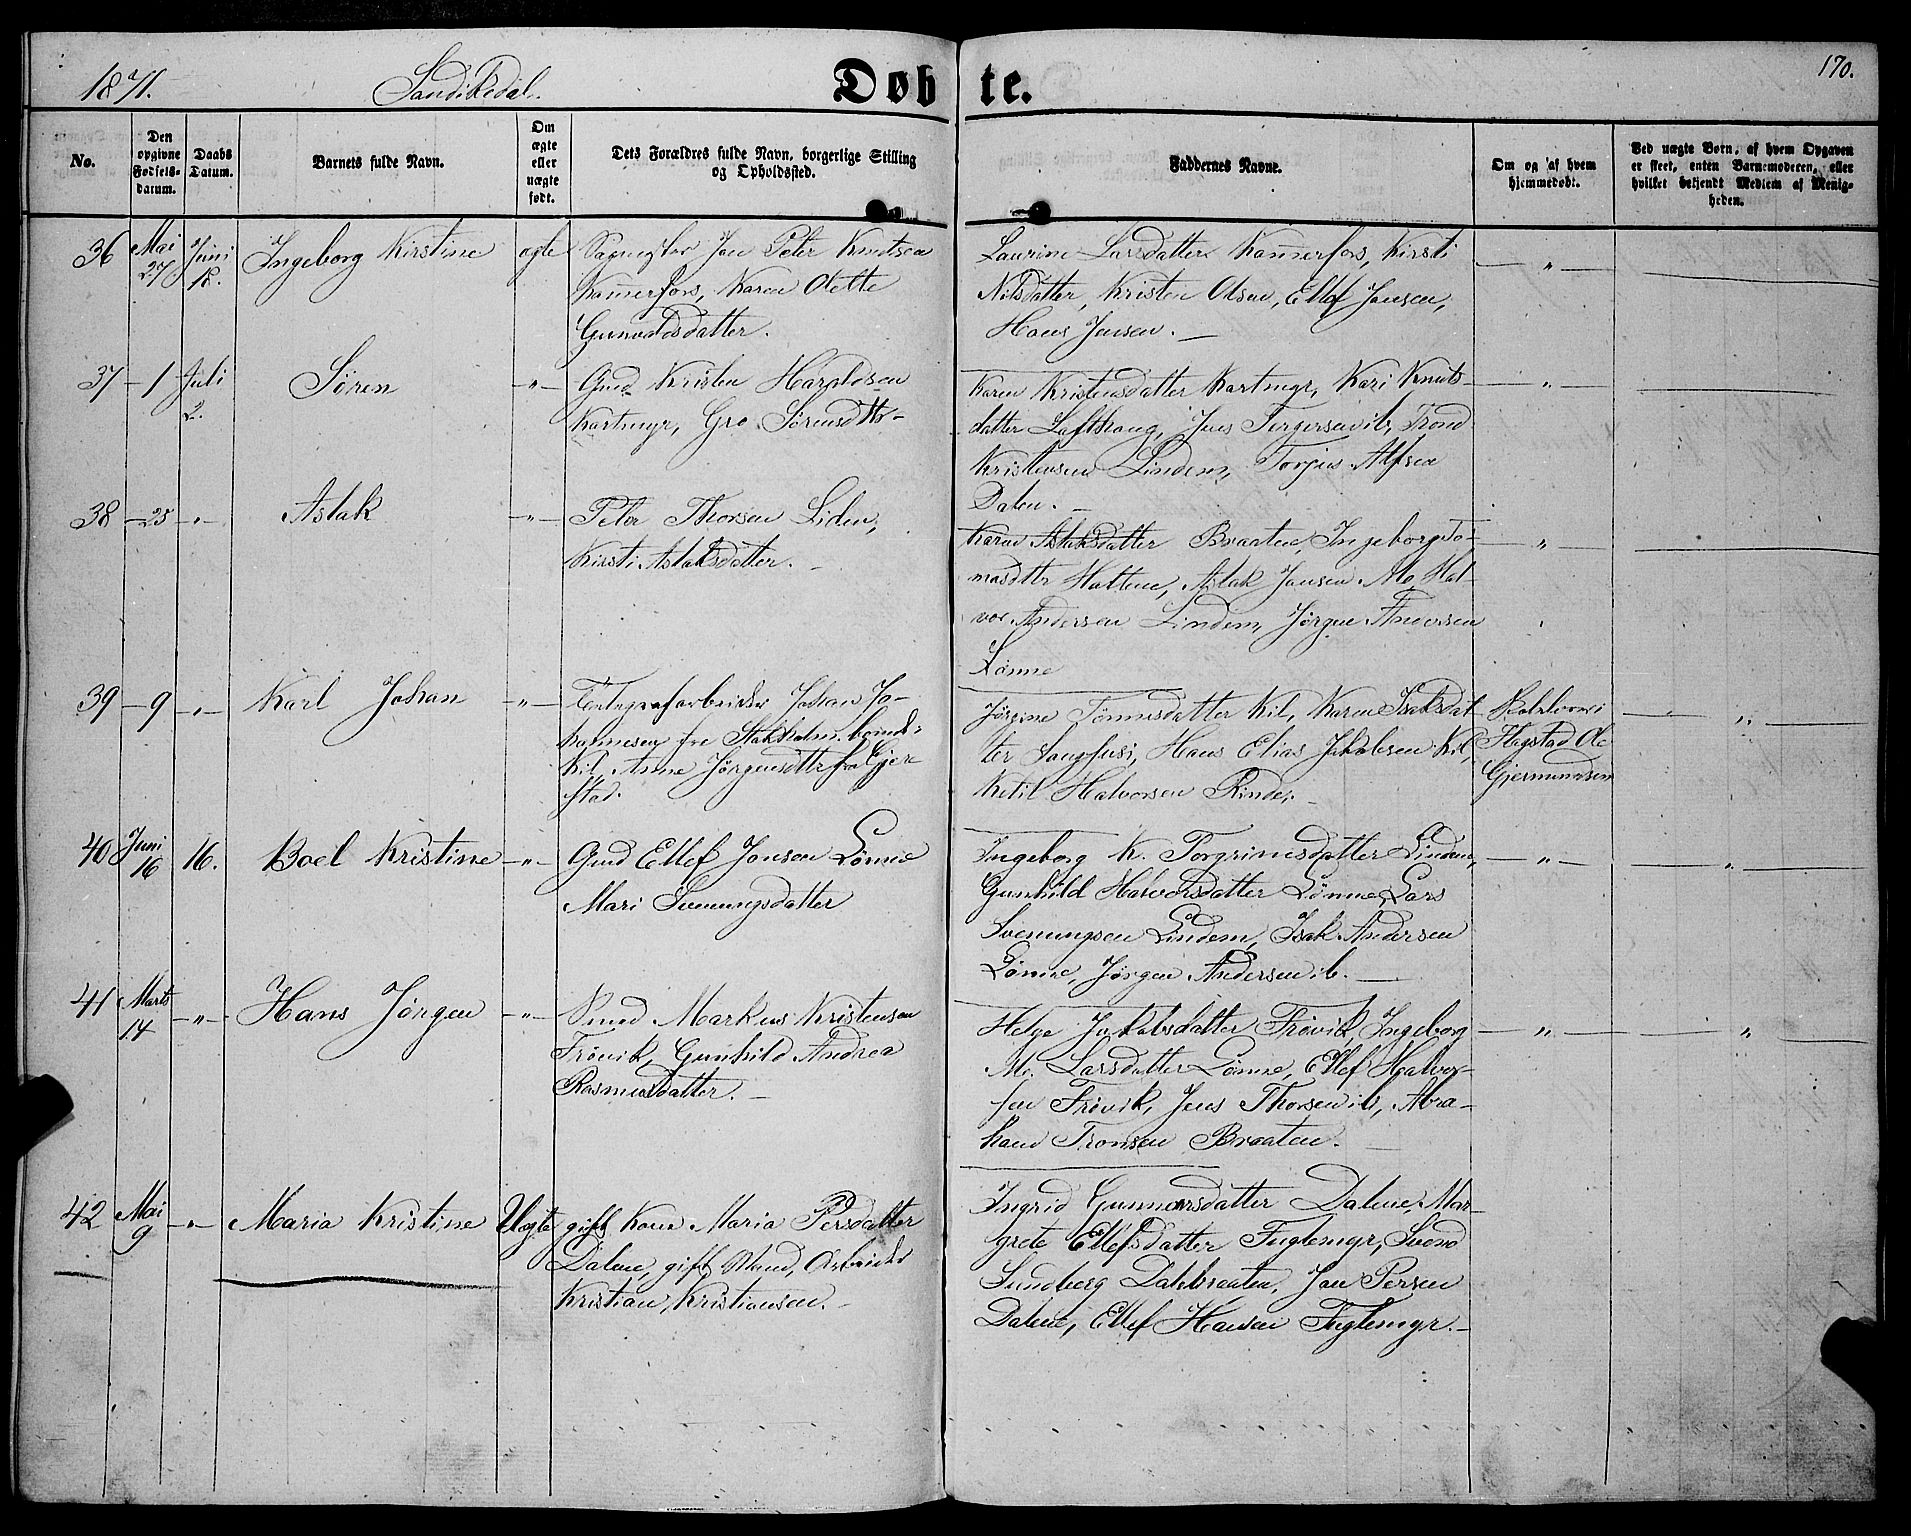 1871.
Sandikedal.
Døbte.
170.
No.
Den opgivne Fødsels-datum.
Daabs Datum.
Barnets fulde Navn.
Om ægte eller uægte født.
Dets Forældres fulde Navn, borgerlige Stilling og Opholdssted.
Faddernes Navne.
Om og af hvem hjemmedøbt.
Ved uægte Børn, af hvem Opgaven er skeet, enten Barnemoderen, eller hvilket bekjendt Medlem af Menigheden.
36 Mai 27 Juni 18. Ingeborg Kirstine ægte Jan Peter Knutsen
Kammerfors, Karen Olette
Gunvaldsdatter.
Laurine Larsdatter Kammerfors, Kirsti
Nilsdatter, Kristen Olsen, Ellef Jansen,
Hans Jensen. —
— " —
37 — 1 Juli 2. Søren — " — Gmd Kristen Haraldsen
Kartmyr, Gro Sørensdtr —
Karen Kristensdatter Kartmyr, Kari Knuts-
datter Lofthaug, Jens Tergersen ib, Trond
Kristensen Lindem, Torjus Alfsen
Dalen. —
— " —
38 — 25 — " — Aslak — " — Peter Thorsen Liden,
Kirsti Aslaksdatter. —
Karen Aslaksdatter Braaten, Ingeborg To-
masdtr Haltene, Aslak Jansen Mo, Hal-
vor Andersen Lindem, Jørgen Andersen
Lønne
— " —
39 — 9 — " — Karl Johan — " — Telegrafarbeider Johan Jo-
hannesen fra Stokholm, boende i
Kil, Anne Jørgensdtr fra Gjere
stad.
Jørgine Tønnesdatter Kil, Karen Isaksdat-
ter Langhusi, Hans Elias Jakobsen Kil,
Ketil Halvorsen Rinde, —
Flogstad Ole
Gjermundsen
— " —
40 Juni 16 16. Boel Kristine — " — Gmd Ellef Jonsen Lønne
Mari Svenungsdatter
Ingeborg K. Torgrimsdatter Lindem,
Gunhild Halvorsdatter Lønne, Lars
Svenungsen Lindem, Isak Andersen
Lønne, Jørgen Andersen ib. —
— " —
"
41 Marts 14 — " — Hans Jørgen — " — Smed Markus Kristensen
Frøvik, Gunhild Andrea
Rasmusdatter. —
Helge Jakobsdatter Frøvik, Ingeborg
M. Larsdatter Lønne, Ellef Halvor-
sen Frøvik, Jens Thorsen ib, Abra-
ham Tronsen Braaten. —
— " —
"
42 Mai 9 — " — Maria Kristine Uægte gift Kone Maria Persdatter
Dalene, gift Mand, Arbeider
Kristian Kristiansen. —
Ingrid Gunnarsdatter Dalene, Mar-
grete Ellefsdatter Fuglemyr, Svend
Sundberg Dalsbraaten, Jan Persen
Dalene, Ellef Hansen Fuglemyr. —